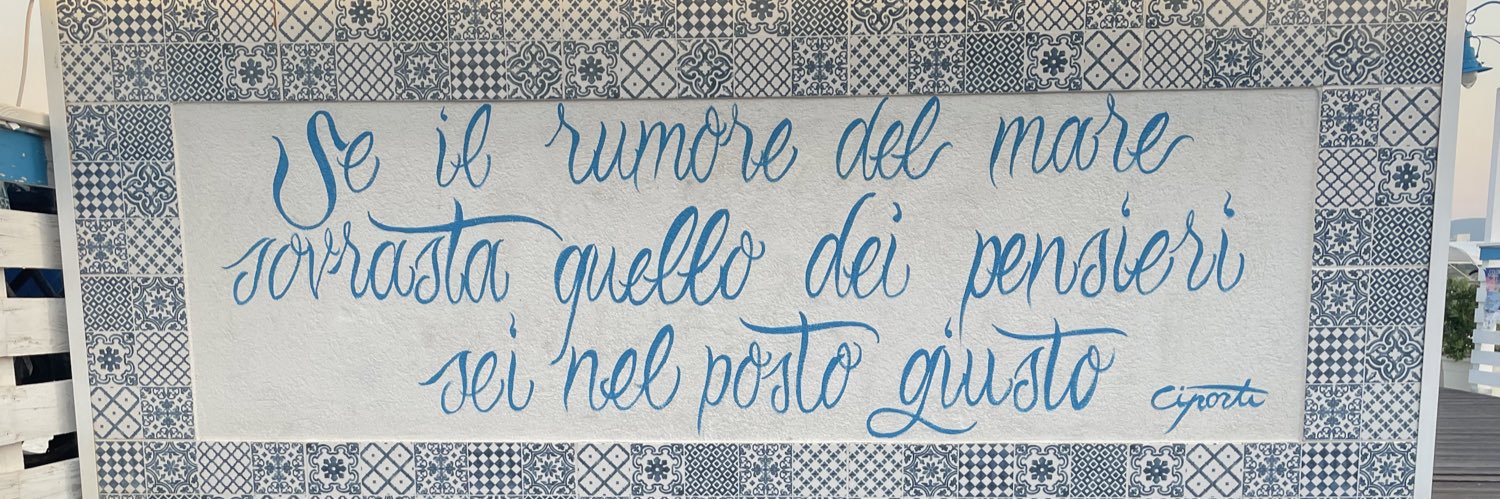 Se il rumore del mare
sovrasta quello dei pensieri
sei nel posto giusto
Ciporti